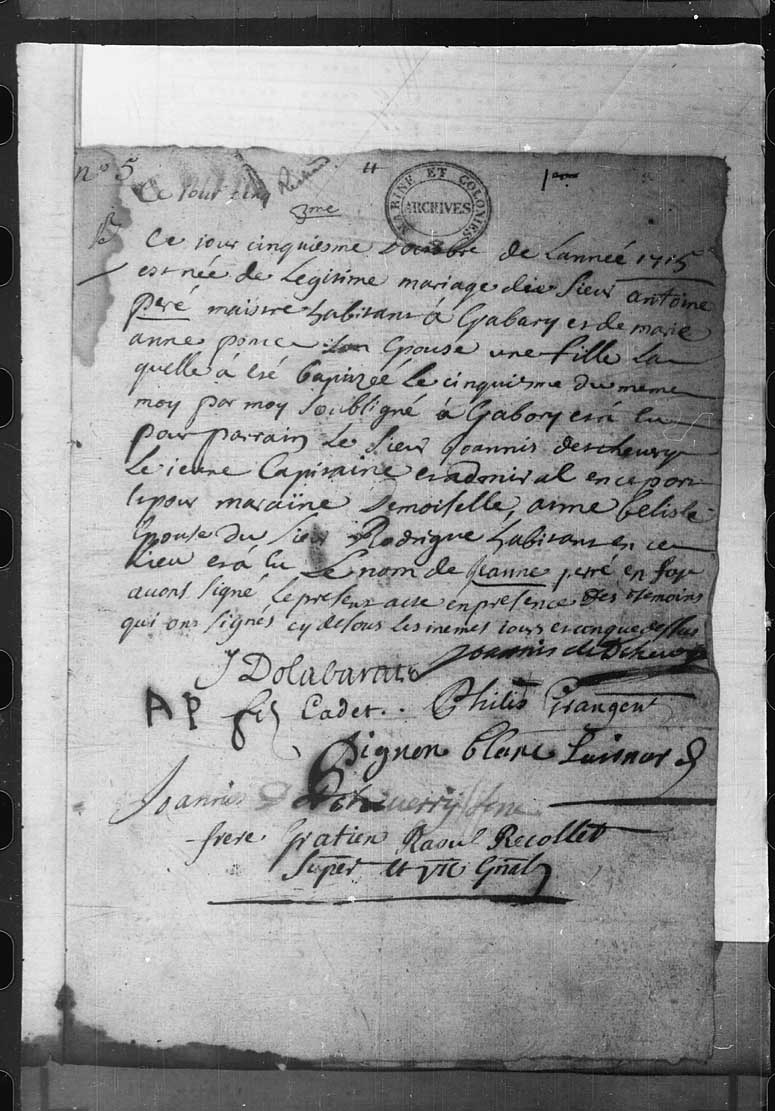 n° 5
Ce jour cinq
3me
1
MARINE ET COLONIES
ARCHIVES
B
Ce jour cinquiesme doctobre de Lannée 1715
est née de Legitime mariage du Sieur antoine
peré maistre habitant à Gabary et de marie
anne ponce son Epouse une fille La
quelle à été bapuzée Le cinquiesme du meme
moy par moy soubsigné à Gabory et à lu
pour parrain Le Sieur Joannis detcheverry
Le ieune Capitaine et admiral en ce port
et pour maraïne demoiselle, anne belisle
Epouse du Sieur Rodrigue habitant en ce
lieu et à lu Le nom de jeanne perré en foy
avons signé Le present acte en presence des temoins
qui ons signés cy desous Les memes jours et en que dessus
J Dolabarats
Joannis de Tcheverry
AP fis Cadet.. Philis Grangent
Pignon blanc Laisnor
Joannis Detcheverry
frere Gratien Raoul Recollet
Super et vic Gñal